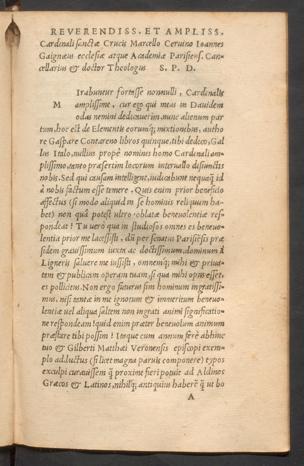 REVERENDISS. ET AMPLISS.
Cardinali sanctæ Crucis Marcello Ceruino Ioannes
Gaignæus ecclesiæ atque Academiæ Parisiens. Can-
cellarius & doctor Theologus S. P. D.
M
Irabuntur fortasse nonnulli, Cardinalis
amplissime, cur ego qui meas in Dauidem
odas nemini dedicauerim, nunc alienum par
tum, hoc est de Elementis eorumq; mixtionibus, autho
re Gaspare Contareno libros quinque, tibi dedico, Gal
lus Italo, nullius propè nominis homo Cardinali am-
plissimo, tanto præsertim locorum interuallo disiunctis
nobis. Sed qui causam intelligent, iudicabunt nequaq; id
à nobis factum esse temere. Quis enim prior beneficio
affectus (si modo aliquid in se hominis reliquum ha-
bet) non quà potest vltro oblatæ beneuolentiæ res-
pondeat? Tu verò qua in studiosos omnes es beneuo-
lentia prior me lacessisti, dū per senatus Parisiēsis præ
sidem grauissimum iuxta ac doctissimum, dominum à
Ligneris saluere me iussisti, omnemq; mihi & priua-
tam & publicam operam tuam, si qua mihi opus esset,
es pollicitus. Non ergo futurus sim hominum ingratissi-
mus, nisi tantæ in me ignotum & immeritum beneuo-
lentiæ vel aliqua saltem non ingrati animi significatio-
ne respondeam? quid enim præter beneuolum animum
præstare tibi possim? Itaque cum annum ferè abhinc
tuo & Gilberti Matthæi Veronensis episcopi exem-
plo adductus (si licet magna paruis componere) typos
exculpi curauissem q̃ proximè fieri potuit ad Aldinos
Græcos & Latinos, nihilq; antiquius haberē q̃ ut bo
A